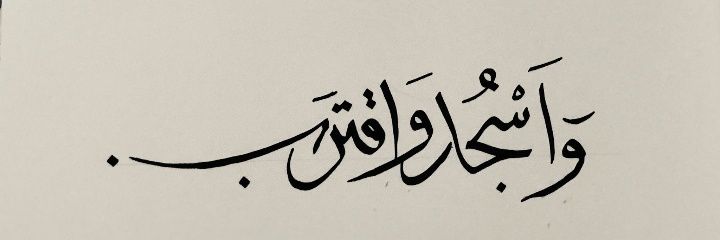 وَاسْجُدْ وَاقْتَرِب